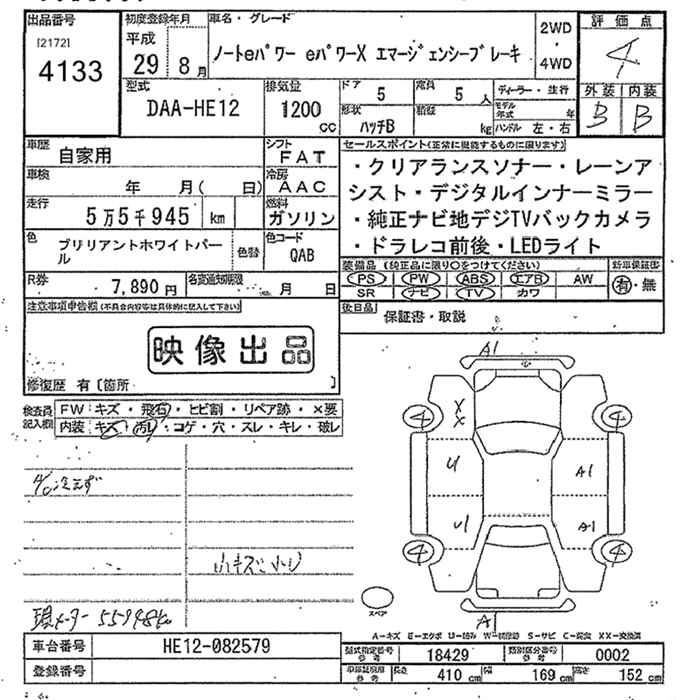 出品番号
[2172]
4133
初度登録年月
平成
29 8 月
車名・グレード
ノートeパワー eパワーX エマージェンシーブレーキ
2WD
・
4WD
評価点
4
外装 内装
B B
型式
DAA-HE12
排気量
1200
cc
ドア
5
定員
5 人
形状
ハッチB
積載
kg
ディーラー・並行
モデル年式 年
ハンドル 左・右
車歴
自家用
シフト
FAT
車検
年 月( 日)
冷房
AAC
走行
5万5千945 km
燃料
ガソリン
色
ブリリアントホワイトパール
色替
色コード
QAB
セールスポイント(正常に機能するものに限ります)
・クリアランスソナー・レーンア
シスト・デジタルインナーミラー
・純正ナビ地デジTVバックカメラ
・ドラレコ前後・LEDライト
R券
7,890 円
名変通知期限
月 日
装備品 (純正品に限り○をつけてください)
PS PW ABS エアB AW
SR ナビ TV カワ
新車保証書
有・無
注意事項申告欄(不具合内容等は具体的に記入して下さい)
映像出品
修復歴 有〔箇所 〕
後日品
保証書・取説
検査員記入欄
FW:キズ・飛石・ヒビ割・リペア跡・×要
内装:キズ・汚レ・コゲ・穴・スレ・キレ・破レ
A/C冷えず
小キズ
現メーター 55998km
A1
X
X
4 4
U A1
U1 A1
4 4
スペア
A
A-キズ E-エクボ U-凹み W-補修跡 S-サビ C-腐食 XX-交換済
車台番号
HE12-082579
登録番号
型式指定番号 参考
18429
類別区分番号 参考
0002
車検証取得 参考
長さ 410 cm 幅 169 cm 高さ 152 cm